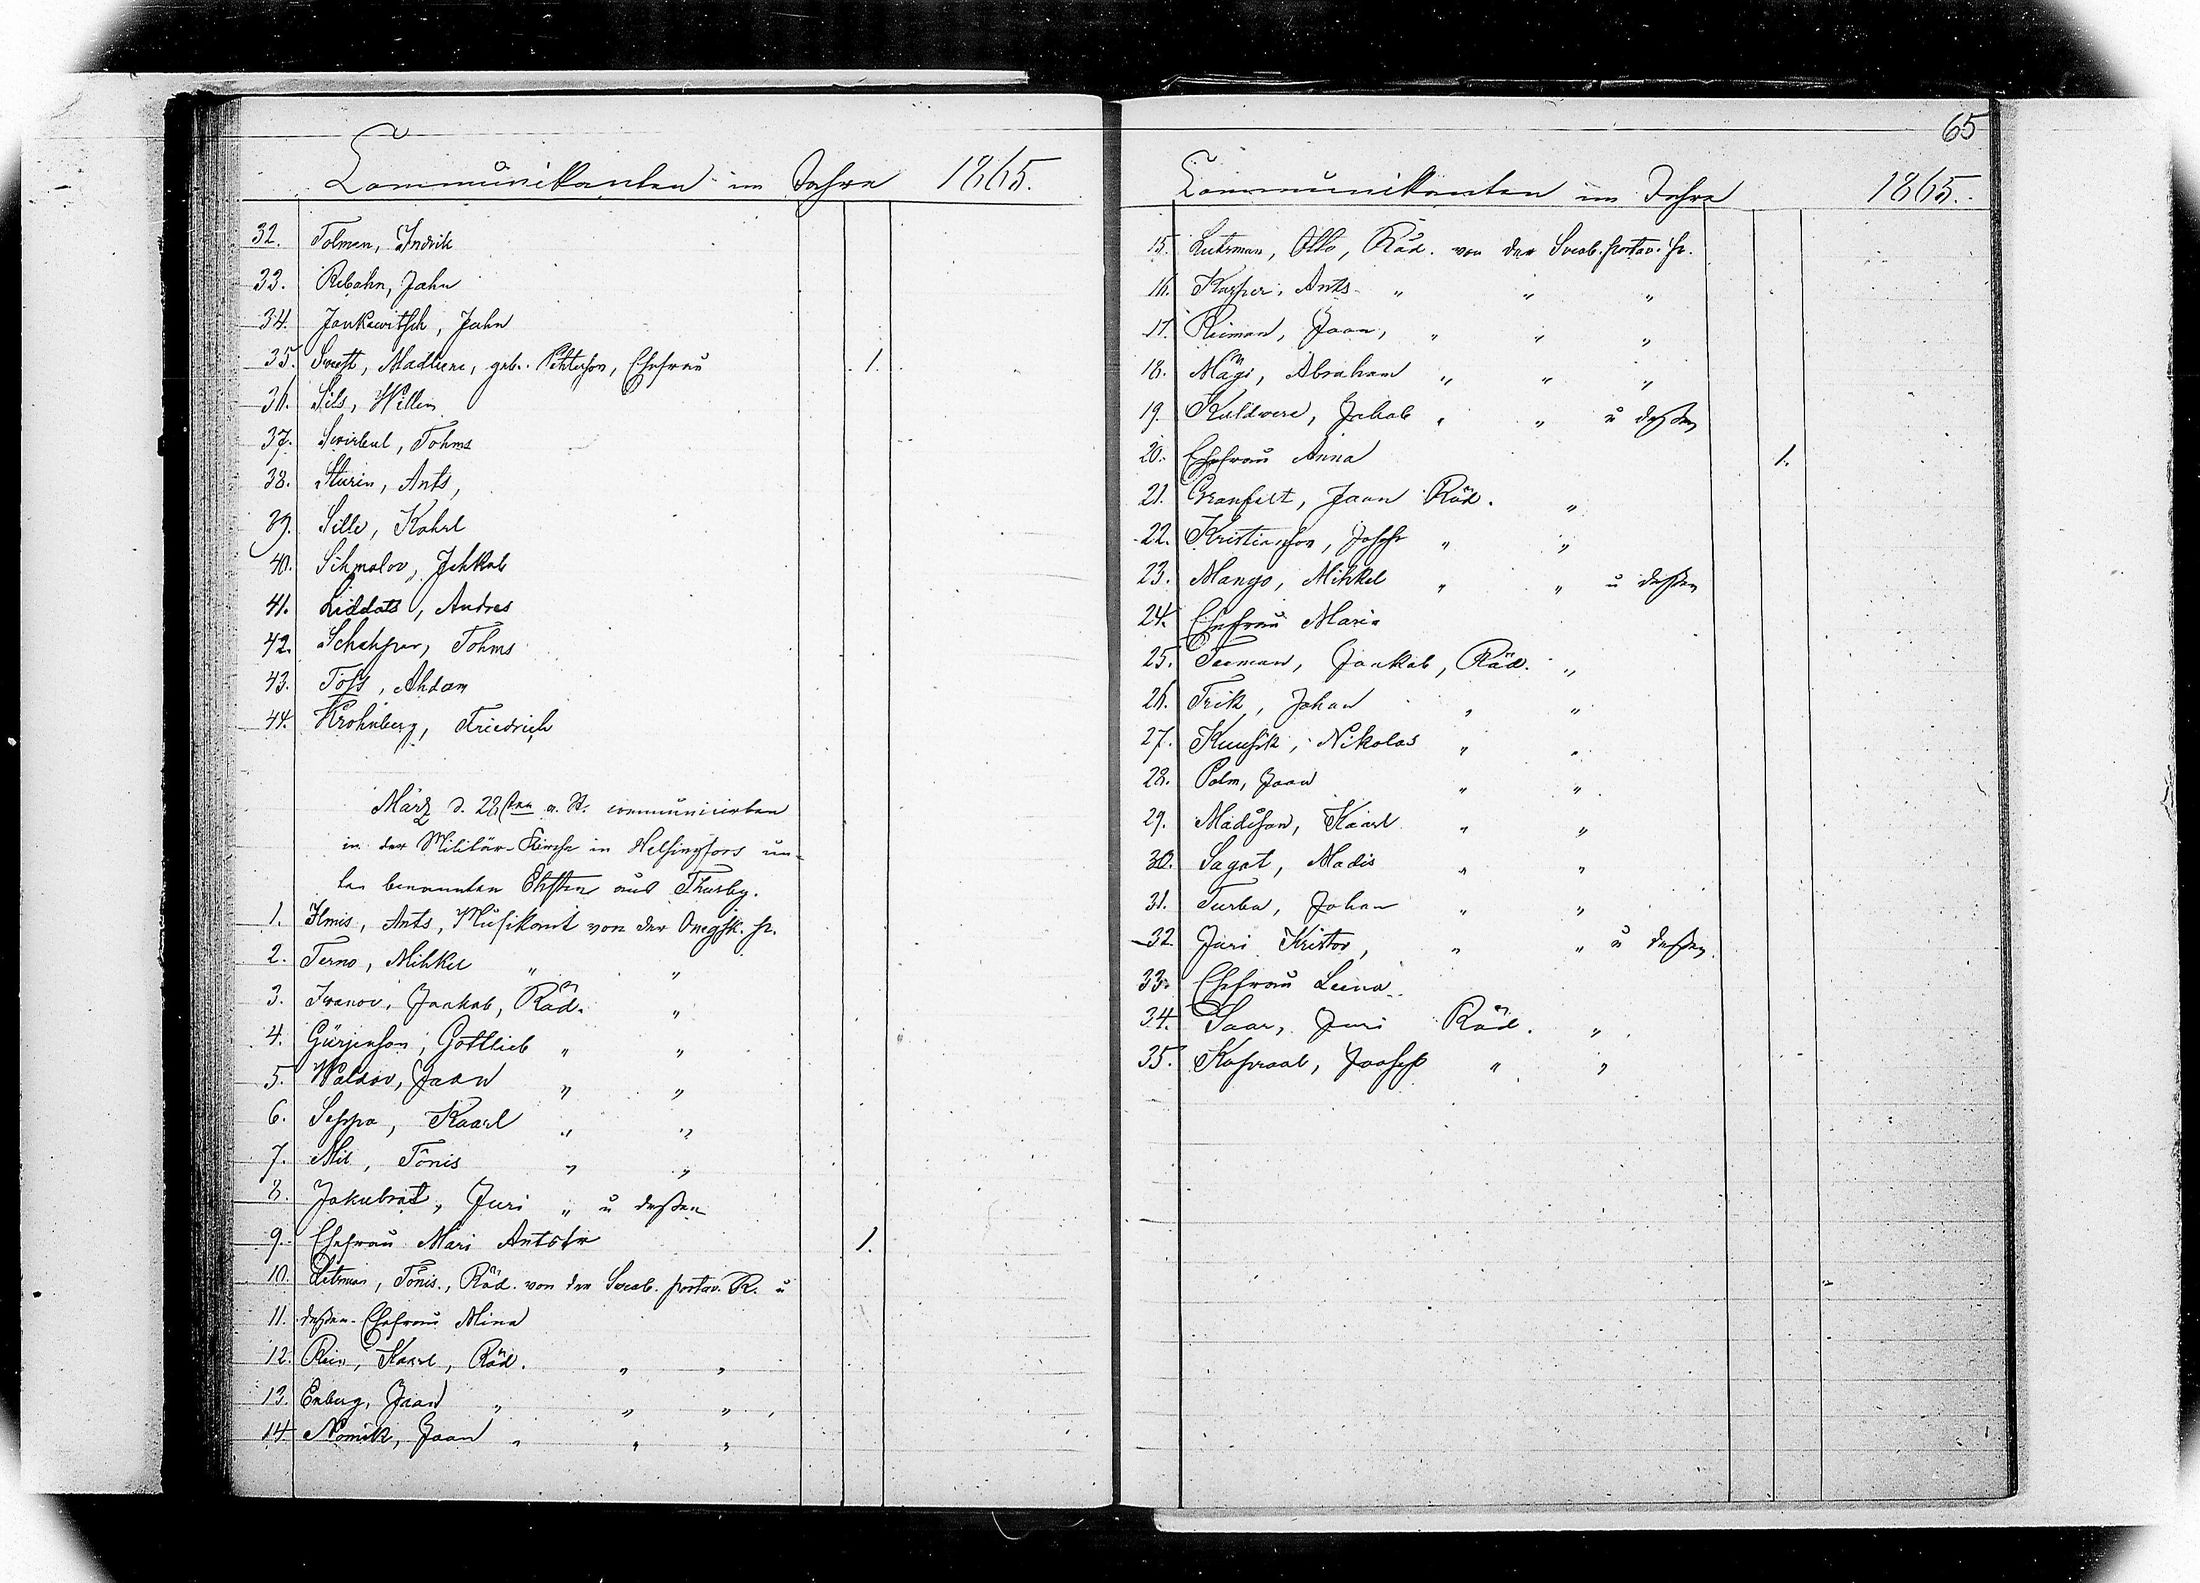 Communikanten im Jahre 1865.
32. Tolmen, Indrik
33. Rebahn, Jahn
34. Jankewitsch, Jahn
35. Swett, Madleene, geb. Pehterson, Ehefrau 1.
36. Sils, Willem
37. Swirbul, Tohms
38. Sturin, Ants,
39. Sille, Kahrl
40. Sihmalov, Jehkab
41. Liddats, Andres
42. Schahpar, Tohms
43. Toss, Ahdam
44. Krohnberg, Friedrich
März d. 28sten a. St. communicirten
in der Militär-Kirche in Helsingfors un-
ten benannten Ehsten aus Thusby.
1. Ilmis, Ants, Musikant von der Onegsk. Pr.
2. Terno, Mihkel " "
3. Iwanov, Jaakab, Räd. "
4. Gürjenson, Gottlieb " "
5. Waldov, Jaan " "
6. Seppa, Kaarl " "
7. Mil, Tönis " "
8. Jakubrat, Juri " u deßen
9. Ehefrau Mari Antstr 1.
10. Litsman, Tönis, Räd. von der Sweab. portav. R. u
11. deßen Ehefrau Mina
12. Rein, Kaarl, Räd. " "
13. Enberg, Jaan " " "
14. Nomik, Jaan " " "
65
Communikanten im Jahre 1865.
15. Lutsman, Otto, Räd. von der Sveab. portav. Pr.
16. Kasper, Ants " " "
17. Reiman, Jaan, " " "
18. Mägi, Abraham " " "
19. Kuldwere, Jakob " " u deßen
20. Ehefrau Anna 1.
21. Granfelt, Jaan Räd. "
22. Kristianson, Joseph " "
23. Mango, Mihkel " " u deßen
24. Ehefrau Maria
25. Teeman, Jaakab, Räd. "
26. Trik, Johan " "
27. Kuusik, Nikolas " "
28. Palm, Jaan " "
29. Madison, Kaarl " "
30. Sagat, Madis " "
31. Turba, Johan " "
32. Juri Kristov, " " u deßen
33. Ehefrau Leena
34. Saar, Juri Räd. "
35. Kapraal, Joosep " "